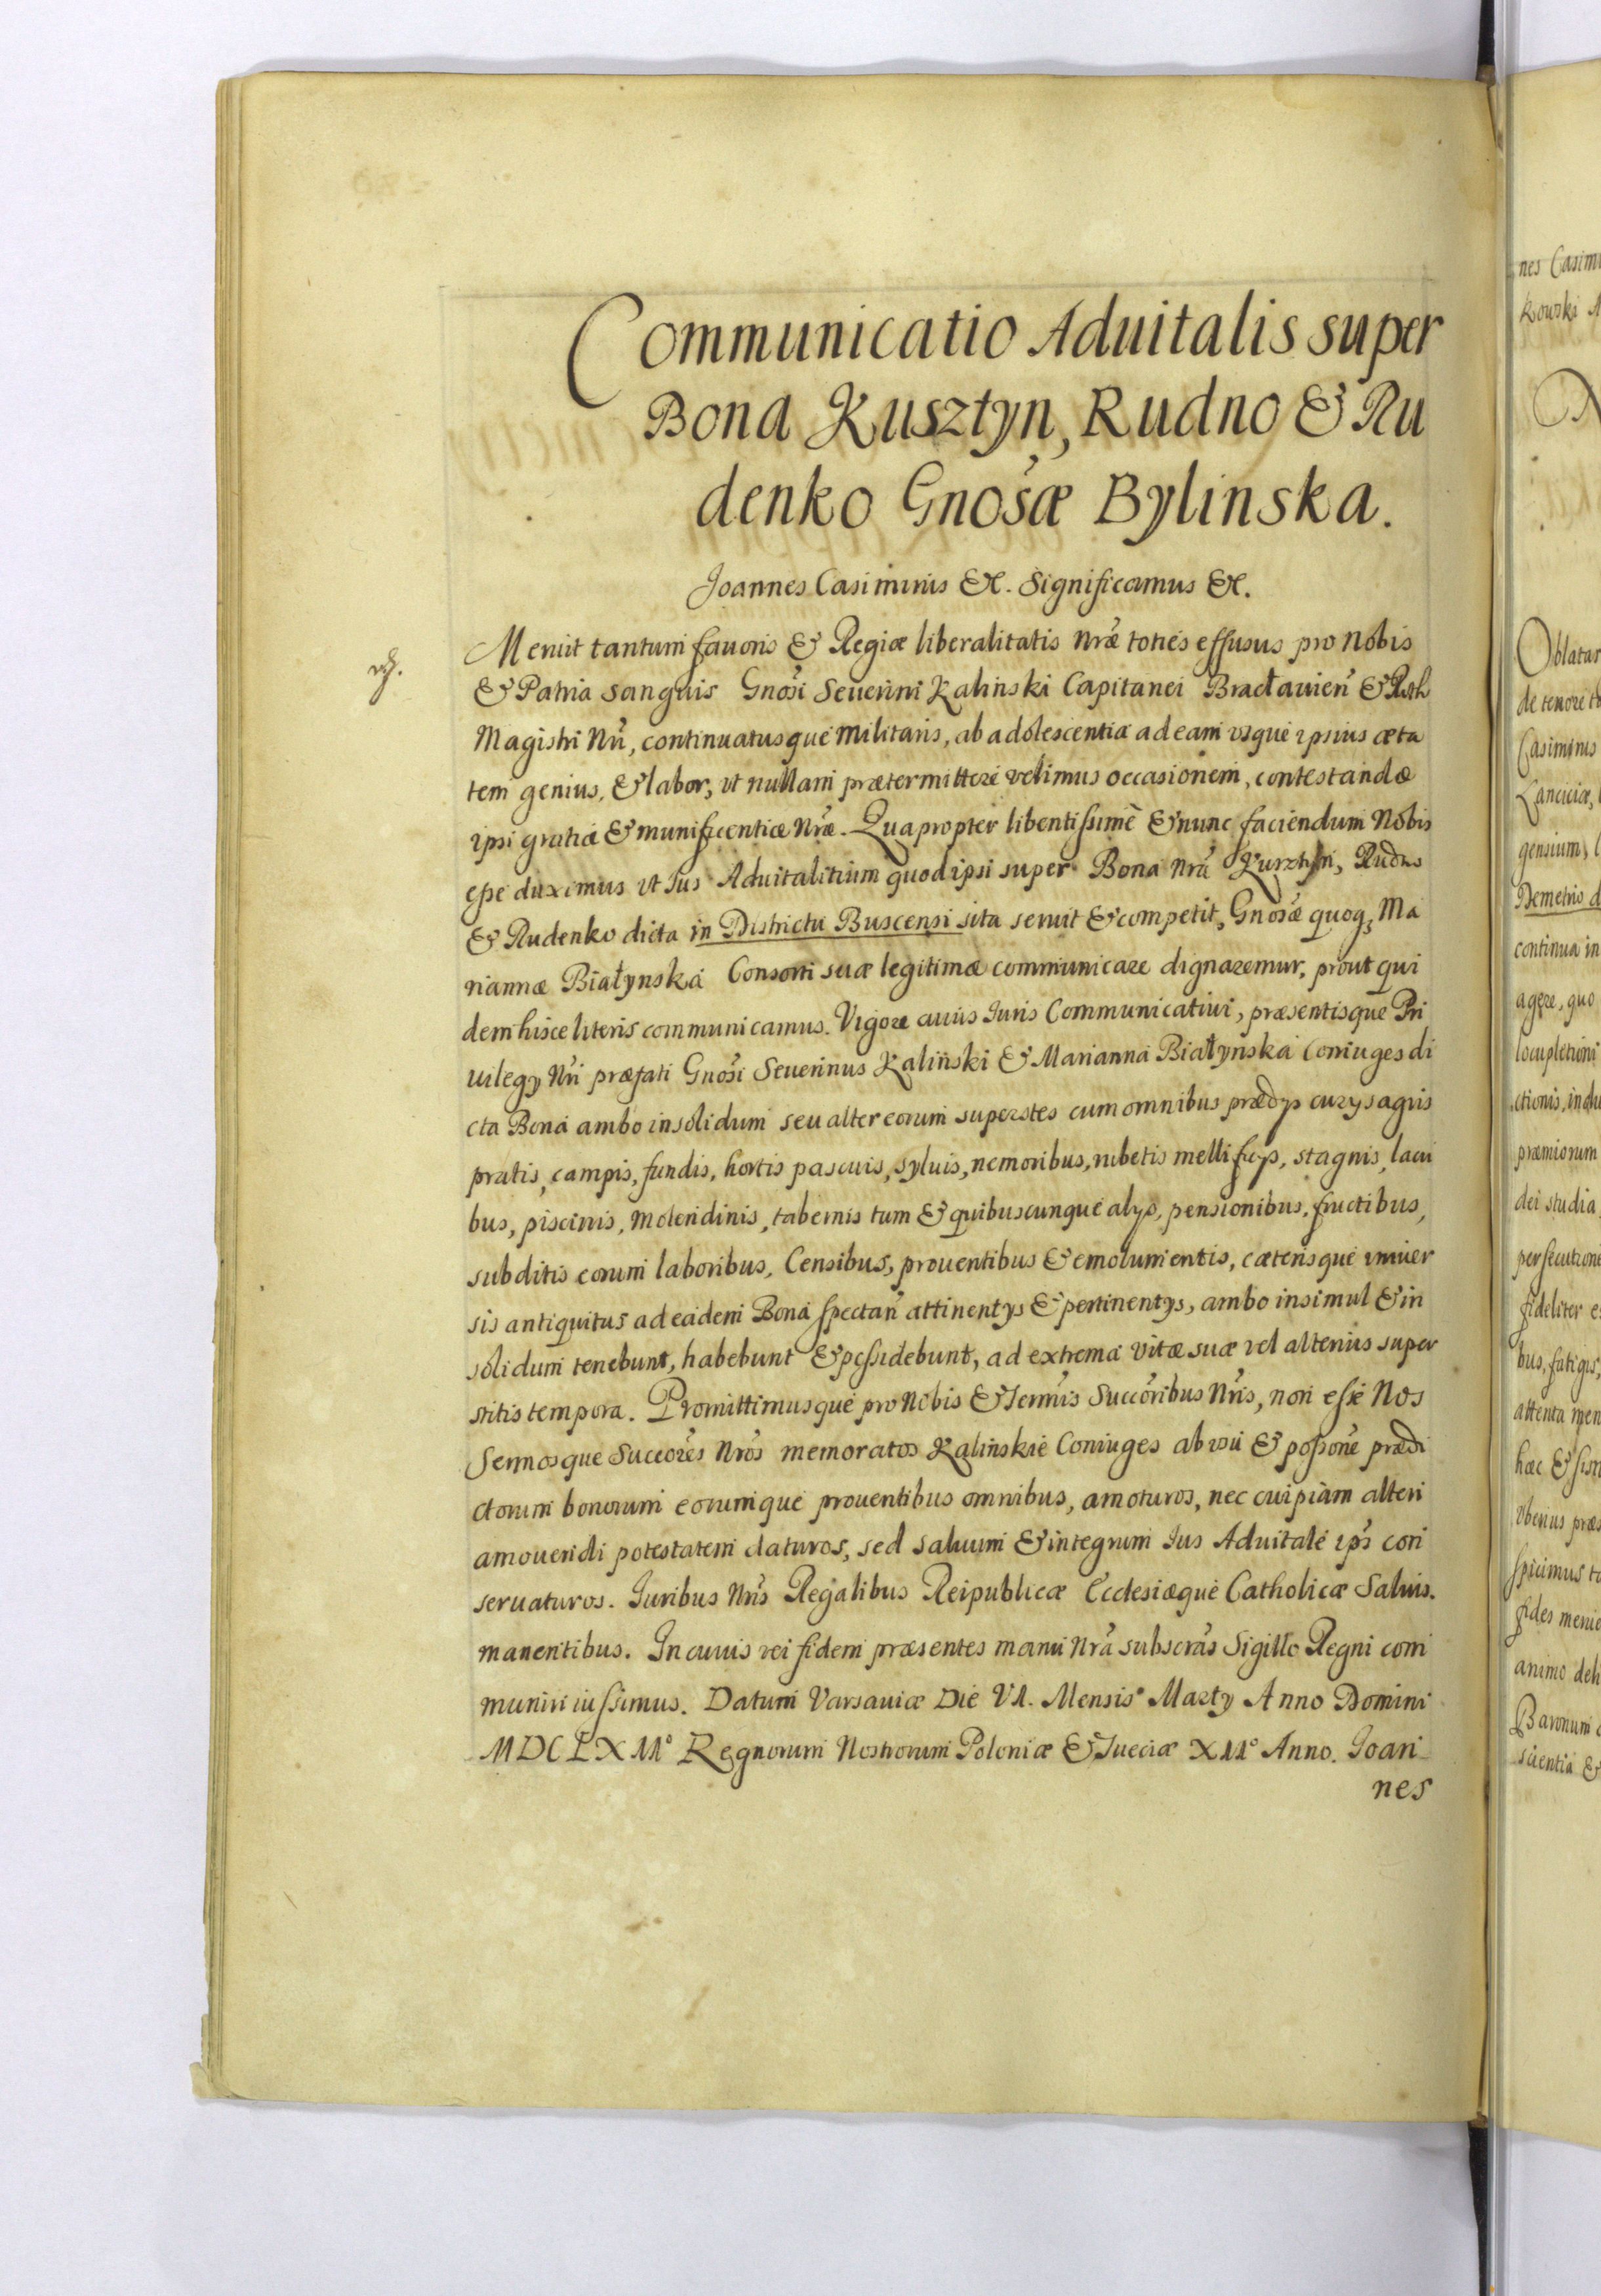 Communicatio Aduitalis super
Bona Kusztyn, Rudno & Ru
denko Gnosæ Bylinska.
Joannes Casimirus &c. Significamus &c.
Meruit tantum fauoris & Regiæ liberalitatis Nræ toties effusus pro Nobis
& Patria sanguis Gnosi Seuerini Kalinski Capitanei Bracłauien &
Magistri Nri, continuatusque Militaris, ab adolescentia ad eam vsque ipsius æta
tem genius, & labor, vt nullam prætermittere velimus occasionem, contestandæ
ipsi gratiæ & munificentiæ Nræ. Quapropter libentissimè & nunc faciendum Nobis
esse duximus vt Ius Aduitalitium quod ipsi super Bona Nra Kusztyn, Rudno
& Rudenko dicta in Districtu Buscensi sita seruit & competit, Gnosæ quoq, Ma
riannæ Białynska Consorti suæ legitimæ communicare dignaremur, prout qui
dem hisce literis communicamus. Vigore cuius Iuris Communicatiui, præsentisque Pri
uilegy Nri præfati Gnosi Seuerinus Kalinski & Marianna Białynska Coniuges di
cta Bona ambo insolidum seu alter eorum superstes cum omnibus prædys curys agris
pratis, campis, fundis, hortis pascuis, syluis, nemoribus, rubetis mellificys, stagnis, lacu
bus, piscinis, molendinis, tabernis tum & quibuscunque alys, pensionibus, fructibus,
subditis eorum laboribus, Censibus, prouentibus & emolumentis, cæterisque vniuer
sis antiquitus ad eadem Bona spectan attinentys & pertinentys, ambo insimul & in
solidum tenebunt, habebunt & possidebunt, ad extrema vitæ suæ vel alterius super
stitis tempora. Promittimusque pro Nobis & Sermis Succoribus Nris, non esse Nos
Sermosque Succores Nros memoratos Kalinskie Coniuges ab vsu & possone prædi
ctorum bonorum eorumque prouentibus omnibus, amoturos, nec cuipiam alteri
amouendi potestatem daturos, sed saluum & integrum Ius Aduitale ips con
seruaturos. Iuribus Nris Regalibus Reipublicæ Ecclesiæque Catholicæ Saluis.
manentibus. In cuius rei fidem præsentes manu Nra subscras Sigillo Regni com
muniri iussimus. Datum Varsauiæ Die VI. Mensis Marty Anno Domini
MDCLXII° Regnorum Nostrorum Poloniæ & Sueciæ XII° Anno. Joan
nes
nes Casimi
Oblatar
de tenore
Casimirus
Lanciciæ,
gensium,
Demetrio d
continua in
agere, quo
præmiorum
dei studia
fideliter e
bus, fatigis,
attenta
hæc &
Vberius præs
spicimus
fides
animo
Baronum
scientia &